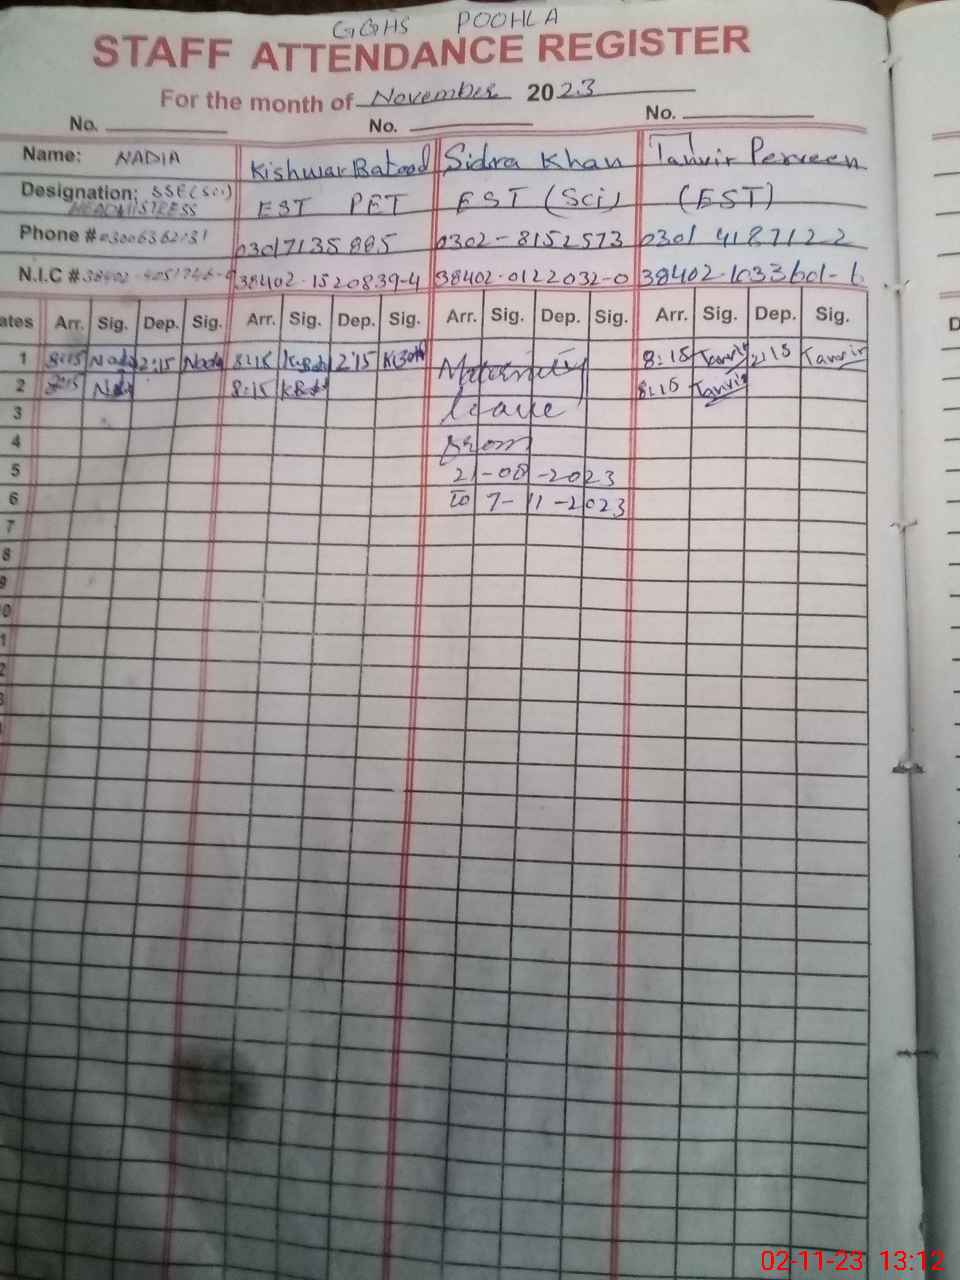 GGHS POOHLA
STAFF ATTENDANCE REGISTER
For the month of November 2023
No. No. No.
Name: NADIA Kishwar Batool Sidra Khan Tanvir Perveen
Designation: SSE(Sci) EST PET EST (Sci) (EST)
HEADMISTRESS
Phone # 03017135885 0302-8152573 0301 4187122
N.I.C # 38402-1520839-4 38402-0122032-0
ates Arr. Sig. Dep. Sig. Arr. Sig. Dep. Sig. Arr. Sig. Dep. Sig. Arr. Sig. Dep. Sig.
1 8:15 Nadia 2:15 Nadia 8:15 2:15 Maternity 8:15 Tanvir 2:15 Tanvir
2 8:15 8:15 Tanvir
3 leave
4 from
5 21-08-2023
6 to 7-11-2023
7
8
9
0
1
2
3
D
02-11-23 13:12